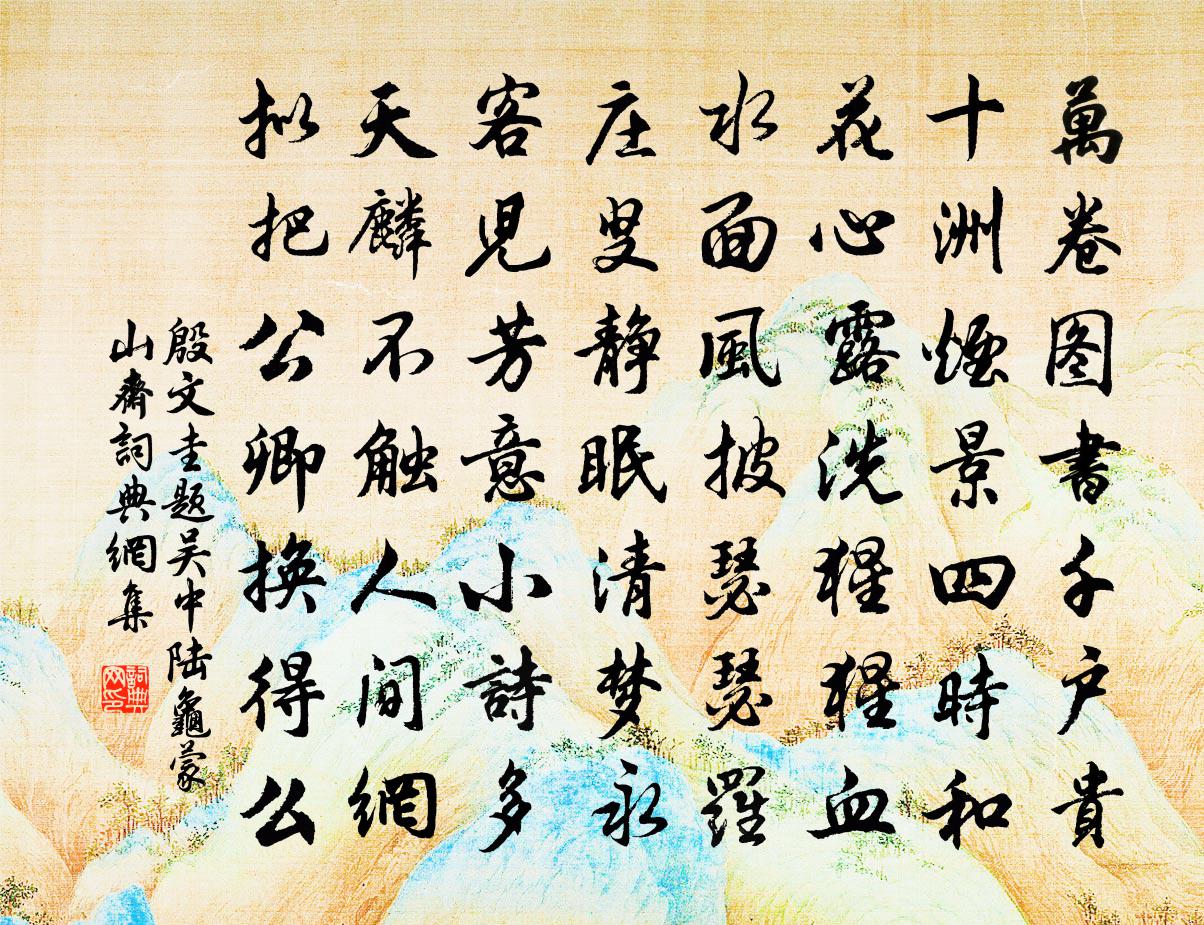 萬卷图書千户貴
十洲煙景四時和
花心露洗猩猩血
水面風披瑟瑟羅
庄叟静眠清梦永
客児芳意小詩多
天麟不触人间網
拟把公卿换得么
殷文圭题吴中陆龜蒙
山齋詞典網集
詞典
网印